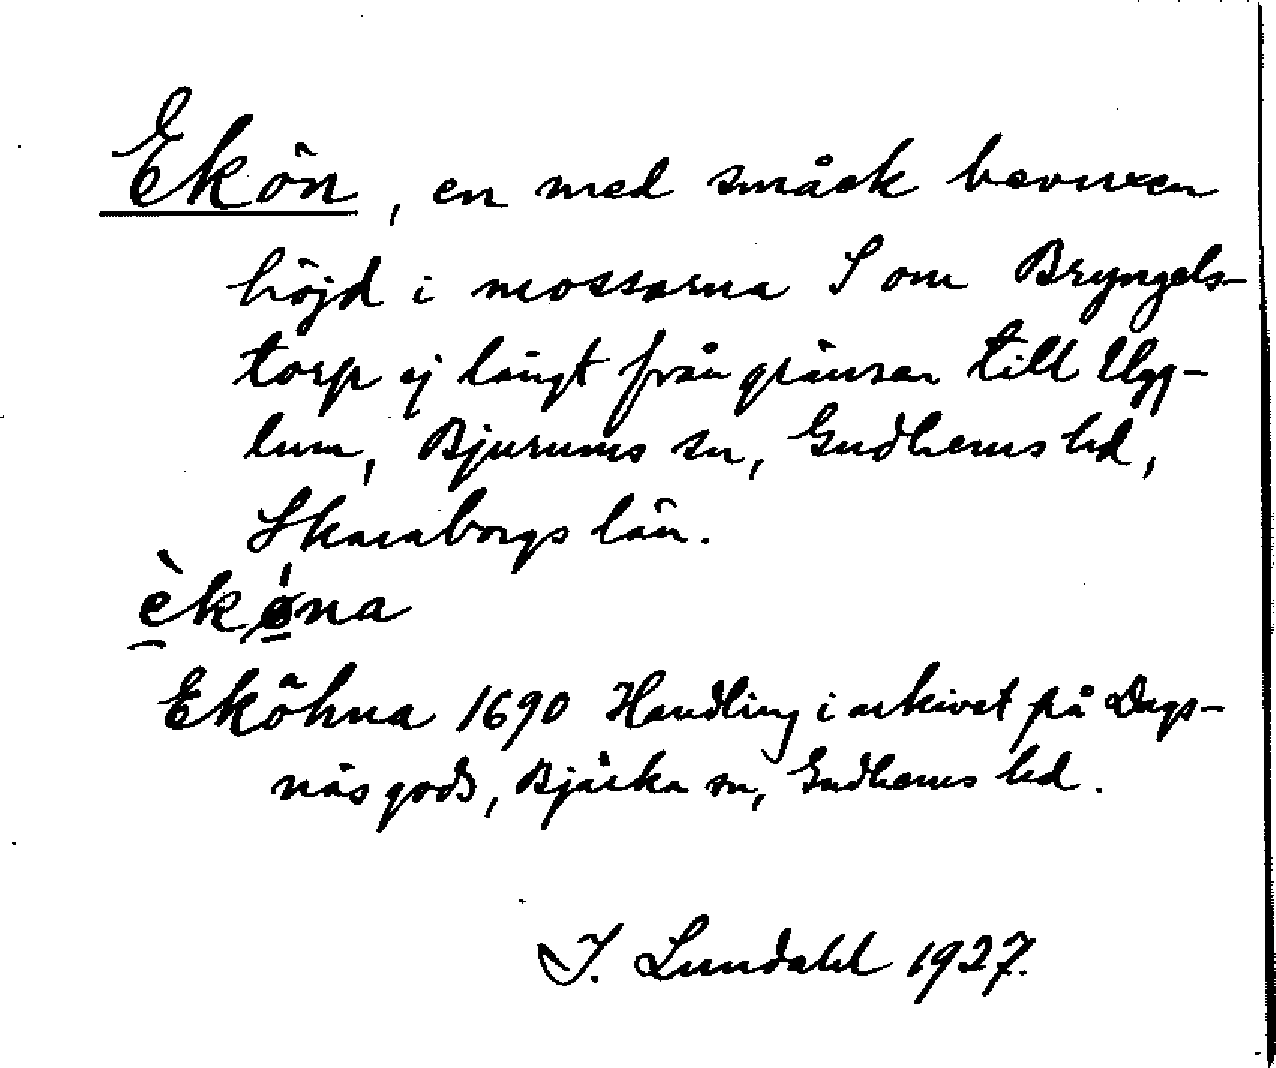 Ekön, en med småek bevuxen
höjd i mossarna S om Bryngels-
torp ej långt från gränsen till Ugg-
lum, Bjurums sn, Gudhems hd,
Skaraborgs län.
è̱kǿ̱na
Eköhna 1690 Handling i arkivet på Dags-
näs gods, Bjärka sn, Gudhems hd.
I. Lundahl 1927.